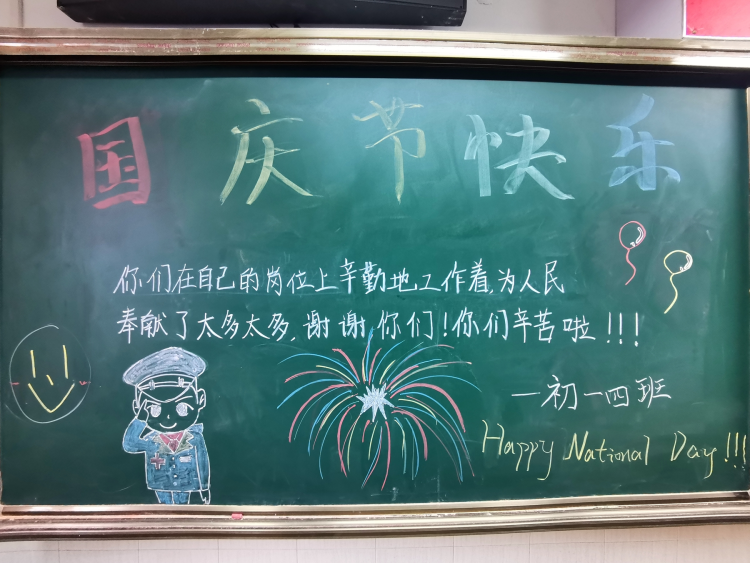 国庆节快乐
你们在自己的岗位上辛勤地工作着,为人民
奉献了太多太多,谢谢你们!你们辛苦啦!!!
—初一四班
Happy National Day!!!